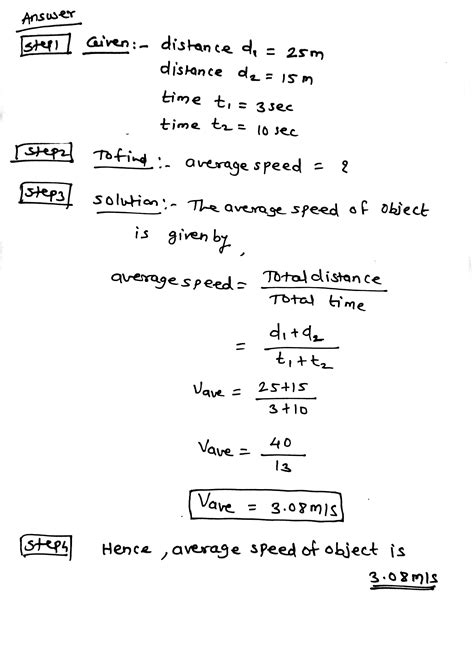 Answer
Step1 Given:- distance d₁ = 25m
distance d₂ = 15m
time t₁ = 3sec
time t₂ = 10 sec
Step2 To find:- average speed = ?
Step3 Solution:- The average speed of object
is given by,
average speed = Total distance / Total time
= d₁+d₂ / t₁+t₂
Vave = 25+15 / 3+10
Vave = 40 / 13
Vave = 3.08m/s
Step4 Hence, average speed of object is
3.08m/s